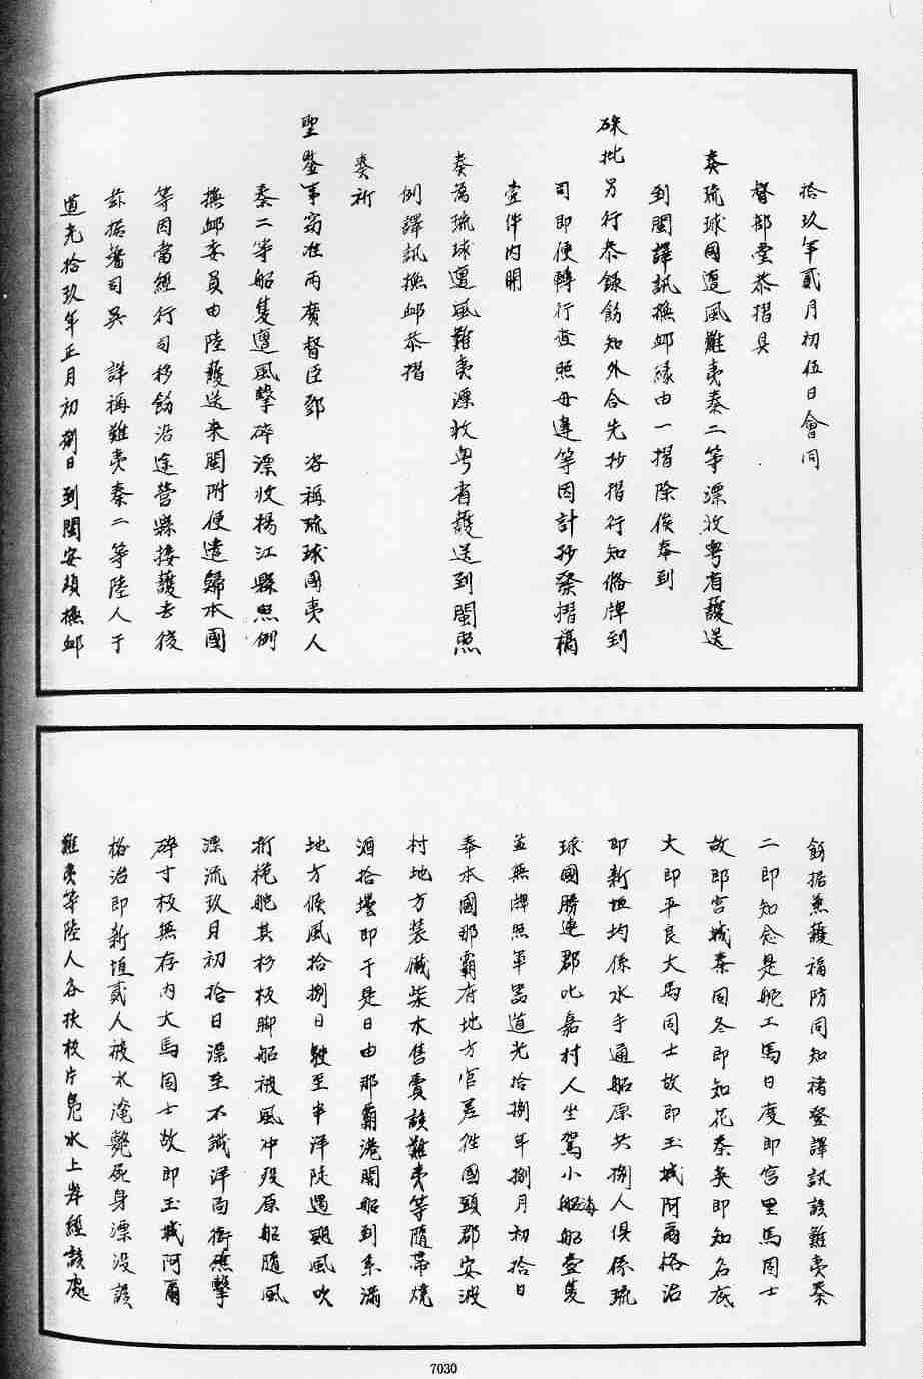 拾玖年貳月初伍日會同
督部堂恭摺具
奏琉球國遭風難夷秦二等漂收粵省護送
到閩譯訊撫卹緣由一摺除俟奉到
硃批另行恭錄飭知外合先抄摺行知偹牌到
司即便轉行查照毋違等因計抄發摺稿
壹件內開
奏為琉球遭風難夷漂收粵省護送到閩照
例譯訊撫卹恭摺
奏祈
聖鑒事竊准兩廣督臣鄧 咨稱琉球國夷人
秦二等船隻遭風擊碎漂收揚江縣照例
撫卹委員由陸護送來閩附便遣歸本國
等因當經行司移飭沿途營縣接護去後
茲據藩司吳 詳稱難夷秦二等陸人于
道光拾玖年正月初捌日到閩安頓撫卹
飭據兼護福防同知褚登譯訊該難夷秦
二即知念是舵工馬日度即宮里馬同士
故即宮城秦同冬即知花秦矣即知名底
大即平良大馬同士故即玉城阿爾格治
即新垣均係水手通船原共捌人俱係琉
球國勝連郡比嘉村人坐駕小海船壹隻
並無牌照軍器道光拾捌年捌月初拾日
奉本國那霸府地方官差往國頭郡安波
村地方裝儎柴木售賣該難夷等隨帶燒
酒拾壜即于是日由那霸港開船到系滿
地方候風拾捌日駛至半洋陡遇颶風吹
折桅舵其杉板腳船被風沖歿原船隨風
漂流玖月初拾日漂至不識洋面衝礁擊
碎寸板無存內大馬同士故即玉城阿爾
格治即新垣貳人被水淹斃死身漂沒該
難夷等陸人各扶板片鳧水上岸經該處
7030